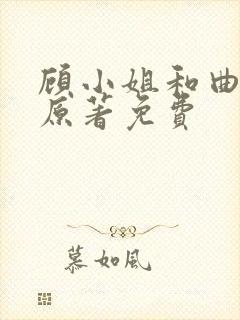 顾小姐和曲
原著免费
慕如风